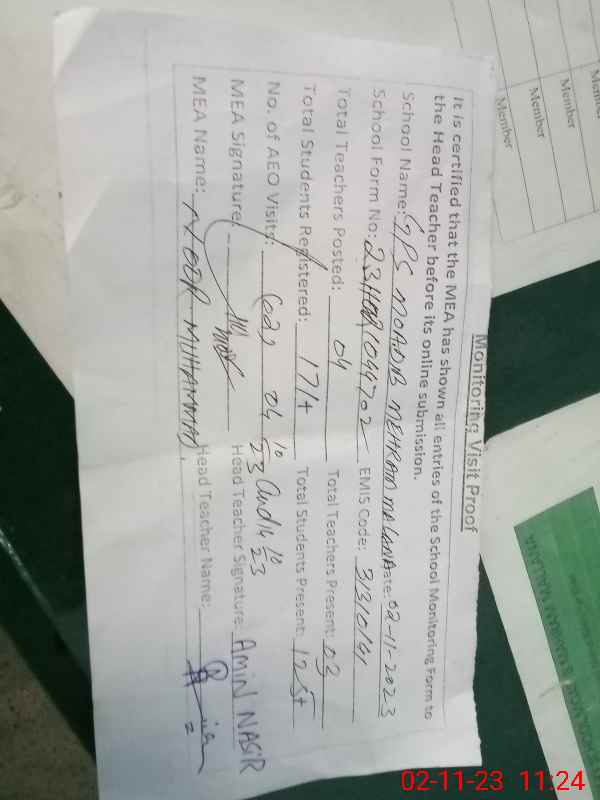 Monitoring Visit Proof
It is certified that the MEA has shown all entries of the School Monitoring Form to
the Head Teacher before its online submission.
School Name: GPS Date: 02-11-2023
School Form No: EMIS Code: 31310141
Total Teachers Posted: 04 Total Teachers Present: 03
Total Students Registered: 171+ Total Students Present:
No. of AEO Visits: (02) 04 10 23 and 14 10 23
MEA Signature: Head Teacher Signature: AMIN NASIR
MEA Name: NOOR MUHAMMAD Head Teacher Name:
Member
Member
Member
Member
02-11-23 11:24